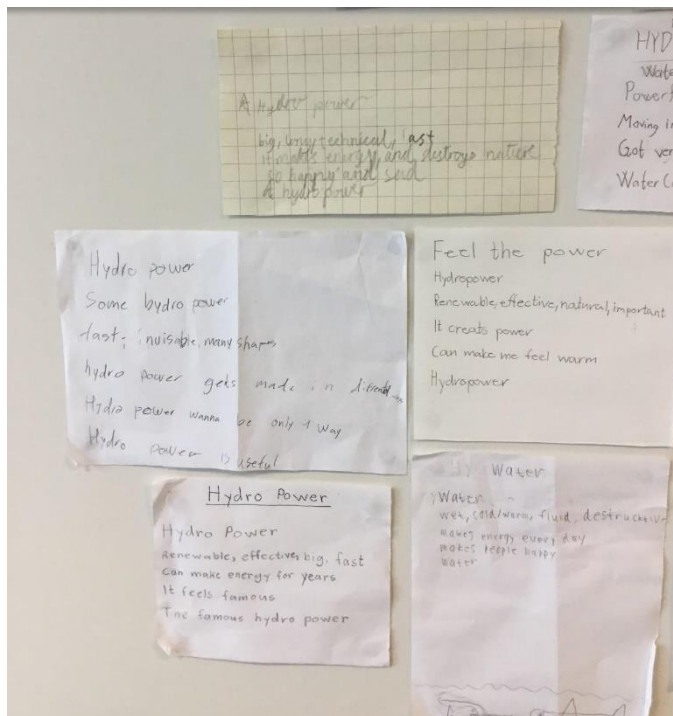 A Hydro power
big, very technical, fast
it makes energy and destroys nature
so happy and sad
A hydropower
HYD
Wate
Powerf
Moving in
Got ver
Water C
Hydro power
Some hydro power
fast, invisable, many shapes
hydro power gets made in
Hydro power wanna be only 1 way
Hydro power is useful
Feel the power
Hydropower
Renewable, effective, natural, important
It creats power
Can make me feel warm
Hydropower
Hydro Power
Hydro Power
Renewable, effective, big, fast
Can make energy for years
It feels famous
The famous hydro power
Hy Water
Water
wet, cold/warm, fluid, destructiv
makes energy every day
makes people happy
Water